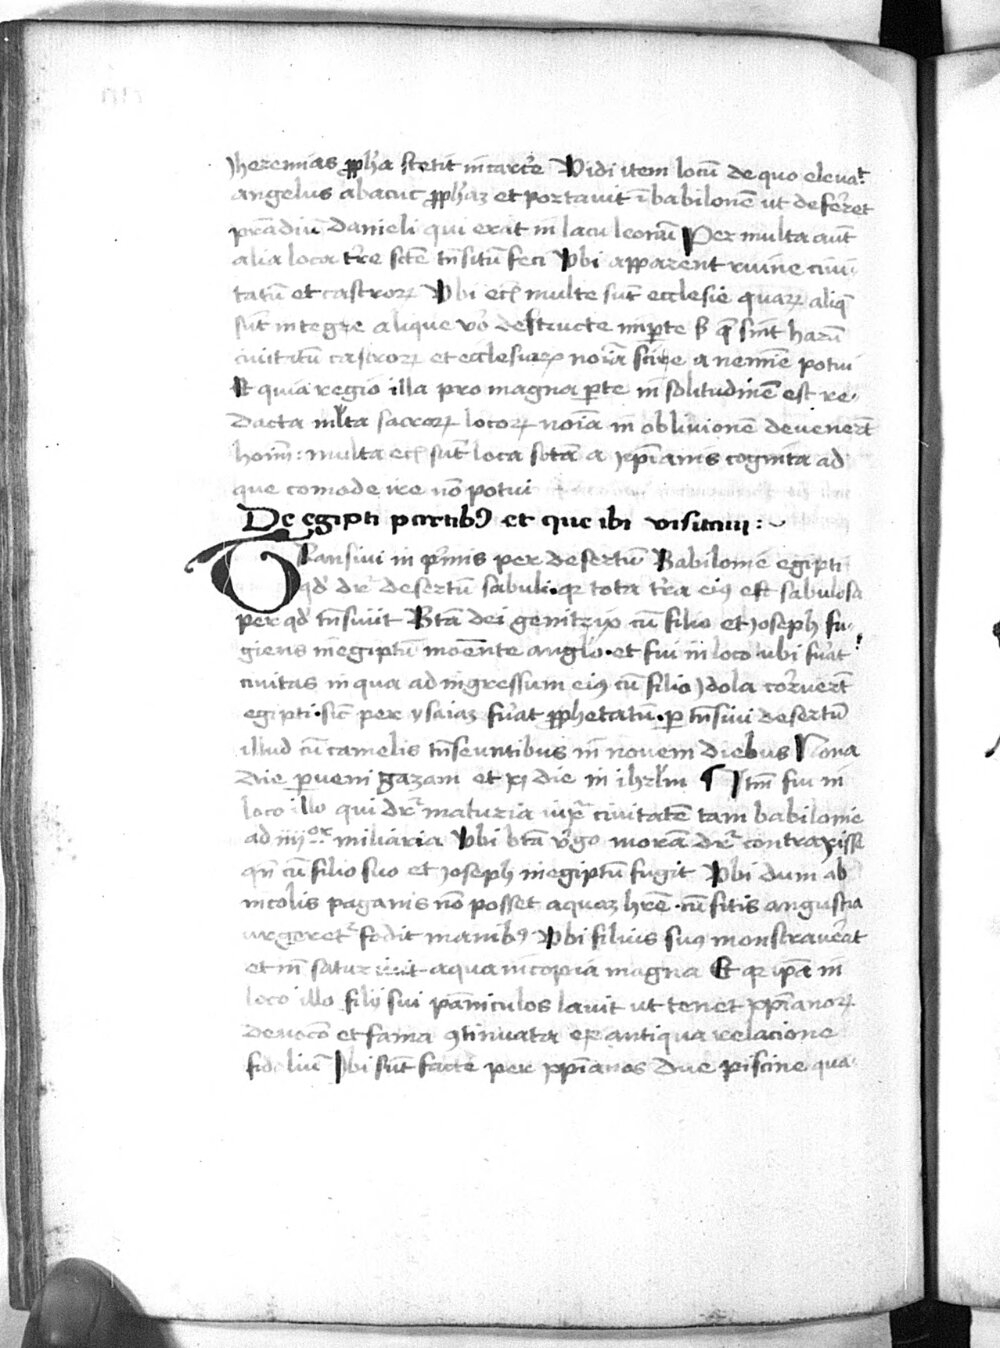 Jheremias ꝓph̄a stetit in carc̄e Vidi item locū de quo elevat̉
angelus abacuc ꝓph̄aꝫ et portavit ī babilonē ut defēret
prādiū Danieli qui erat in lacu leonū Per multa aūt
alia loca t̄re sc̄te t̄nsitū feci Vbi apparent ruine civi
tatū et castroꝝ Vbi ecī multe sūt ecclesie quaꝝ aliq̄
sūt integre alique v̄o destructe in ꝑte ſꝫ q̄ sint harū
civitatū castroꝝ et ecclesiaꝝ noīa scire a nemīe potui
Et quia regio illa pro magna ꝑte in solitudinē est re
dacta mlta sacroꝝ locoꝝ noīa in oblivionē devenerūt
homīm: multa ecī sūt loca sc̄ta a xp̄ianis cognita ad
que comode ire nō potui
De egipti partibꝰ et que ibi visitavi :~
TRansivi in p̄mis per desertū Babilonie egipti
qd̄ dr̄ desertū sabuli. qꝛ tota t̄ra eiꝰ est sabulosa
per qd̄ t̄nsivit Btā dei genitrix cū filio et Joseph fu
giens in egiptū monēte anglo. et fui in loco ubi fuat̉
civitas in qua ad ingressum eiꝰ cū filio Jdola corverūt
egipti. sic̄ per ysaiaꝫ fuat ꝓphetatū. ꝑ t̄nsivi desertū
illud cū camelis t̄nseuntibus in novem diebus Nona
die ꝑveni gazam et xj die in ihrlm ¶ Jtm̄ fui in
loco illo qui dr̄ maturia iuxͣ civitatē tam babilonie
ad iiijͦʳ miliaria Vbi btā v̄go morā dr̄ contraxisse
qn̄ cū filio suo et Joseph in egiptū fugit Vbi dum ab
incolis paganis nō posset aquaꝫ hr̄e. cū sitis angustia
urgeret̉ fodit manibꝰ Vbi filius suꝰ monstraverat
et in̄ saturavit aqua in copia magna Et qꝛ ip̄a in
loco illo filij sui pāniculos lavit ut tenet xp̄ianoꝝ
devocō et fama ꝯtinuata ex antiqua relacione
fideliū Jbi sūt facte per xp̄ianos due piscine qua